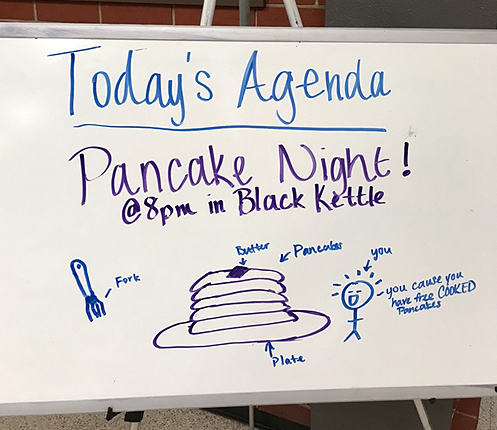 Today's Agenda
Pancake Night!
@8pm in Black Kettle
Butter
Pancakes
you
Fork
you cause you
have free COOKED
Pancakes
Plate